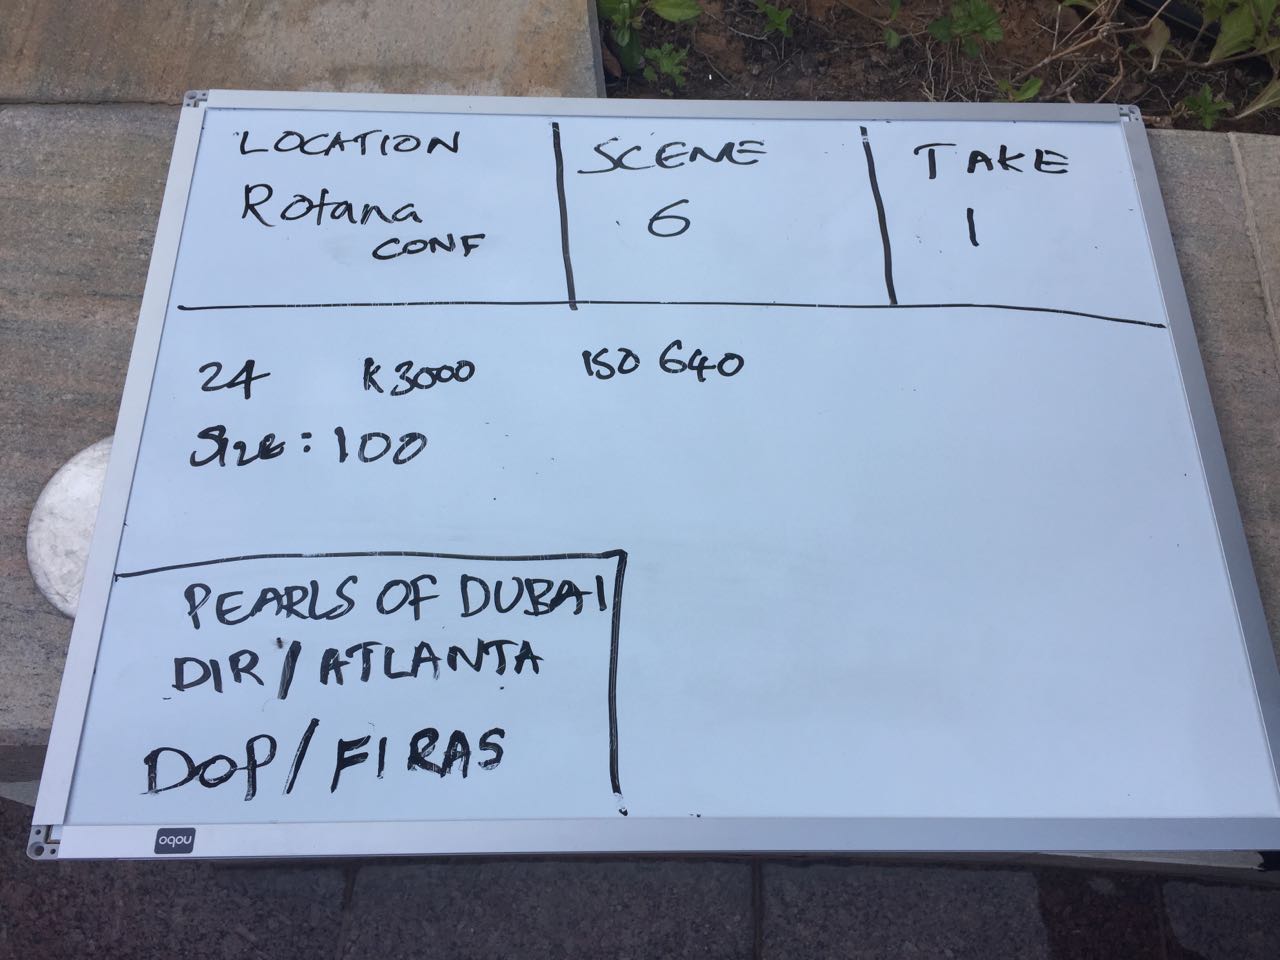 LOCATION
Rotana
CONF
SCENE
6
TAKE
1
24 K3000 ISO 640
Size: 100
PEARLS OF DUBAI
DIR/ATLANTA
DOP/FIRAS
nobo